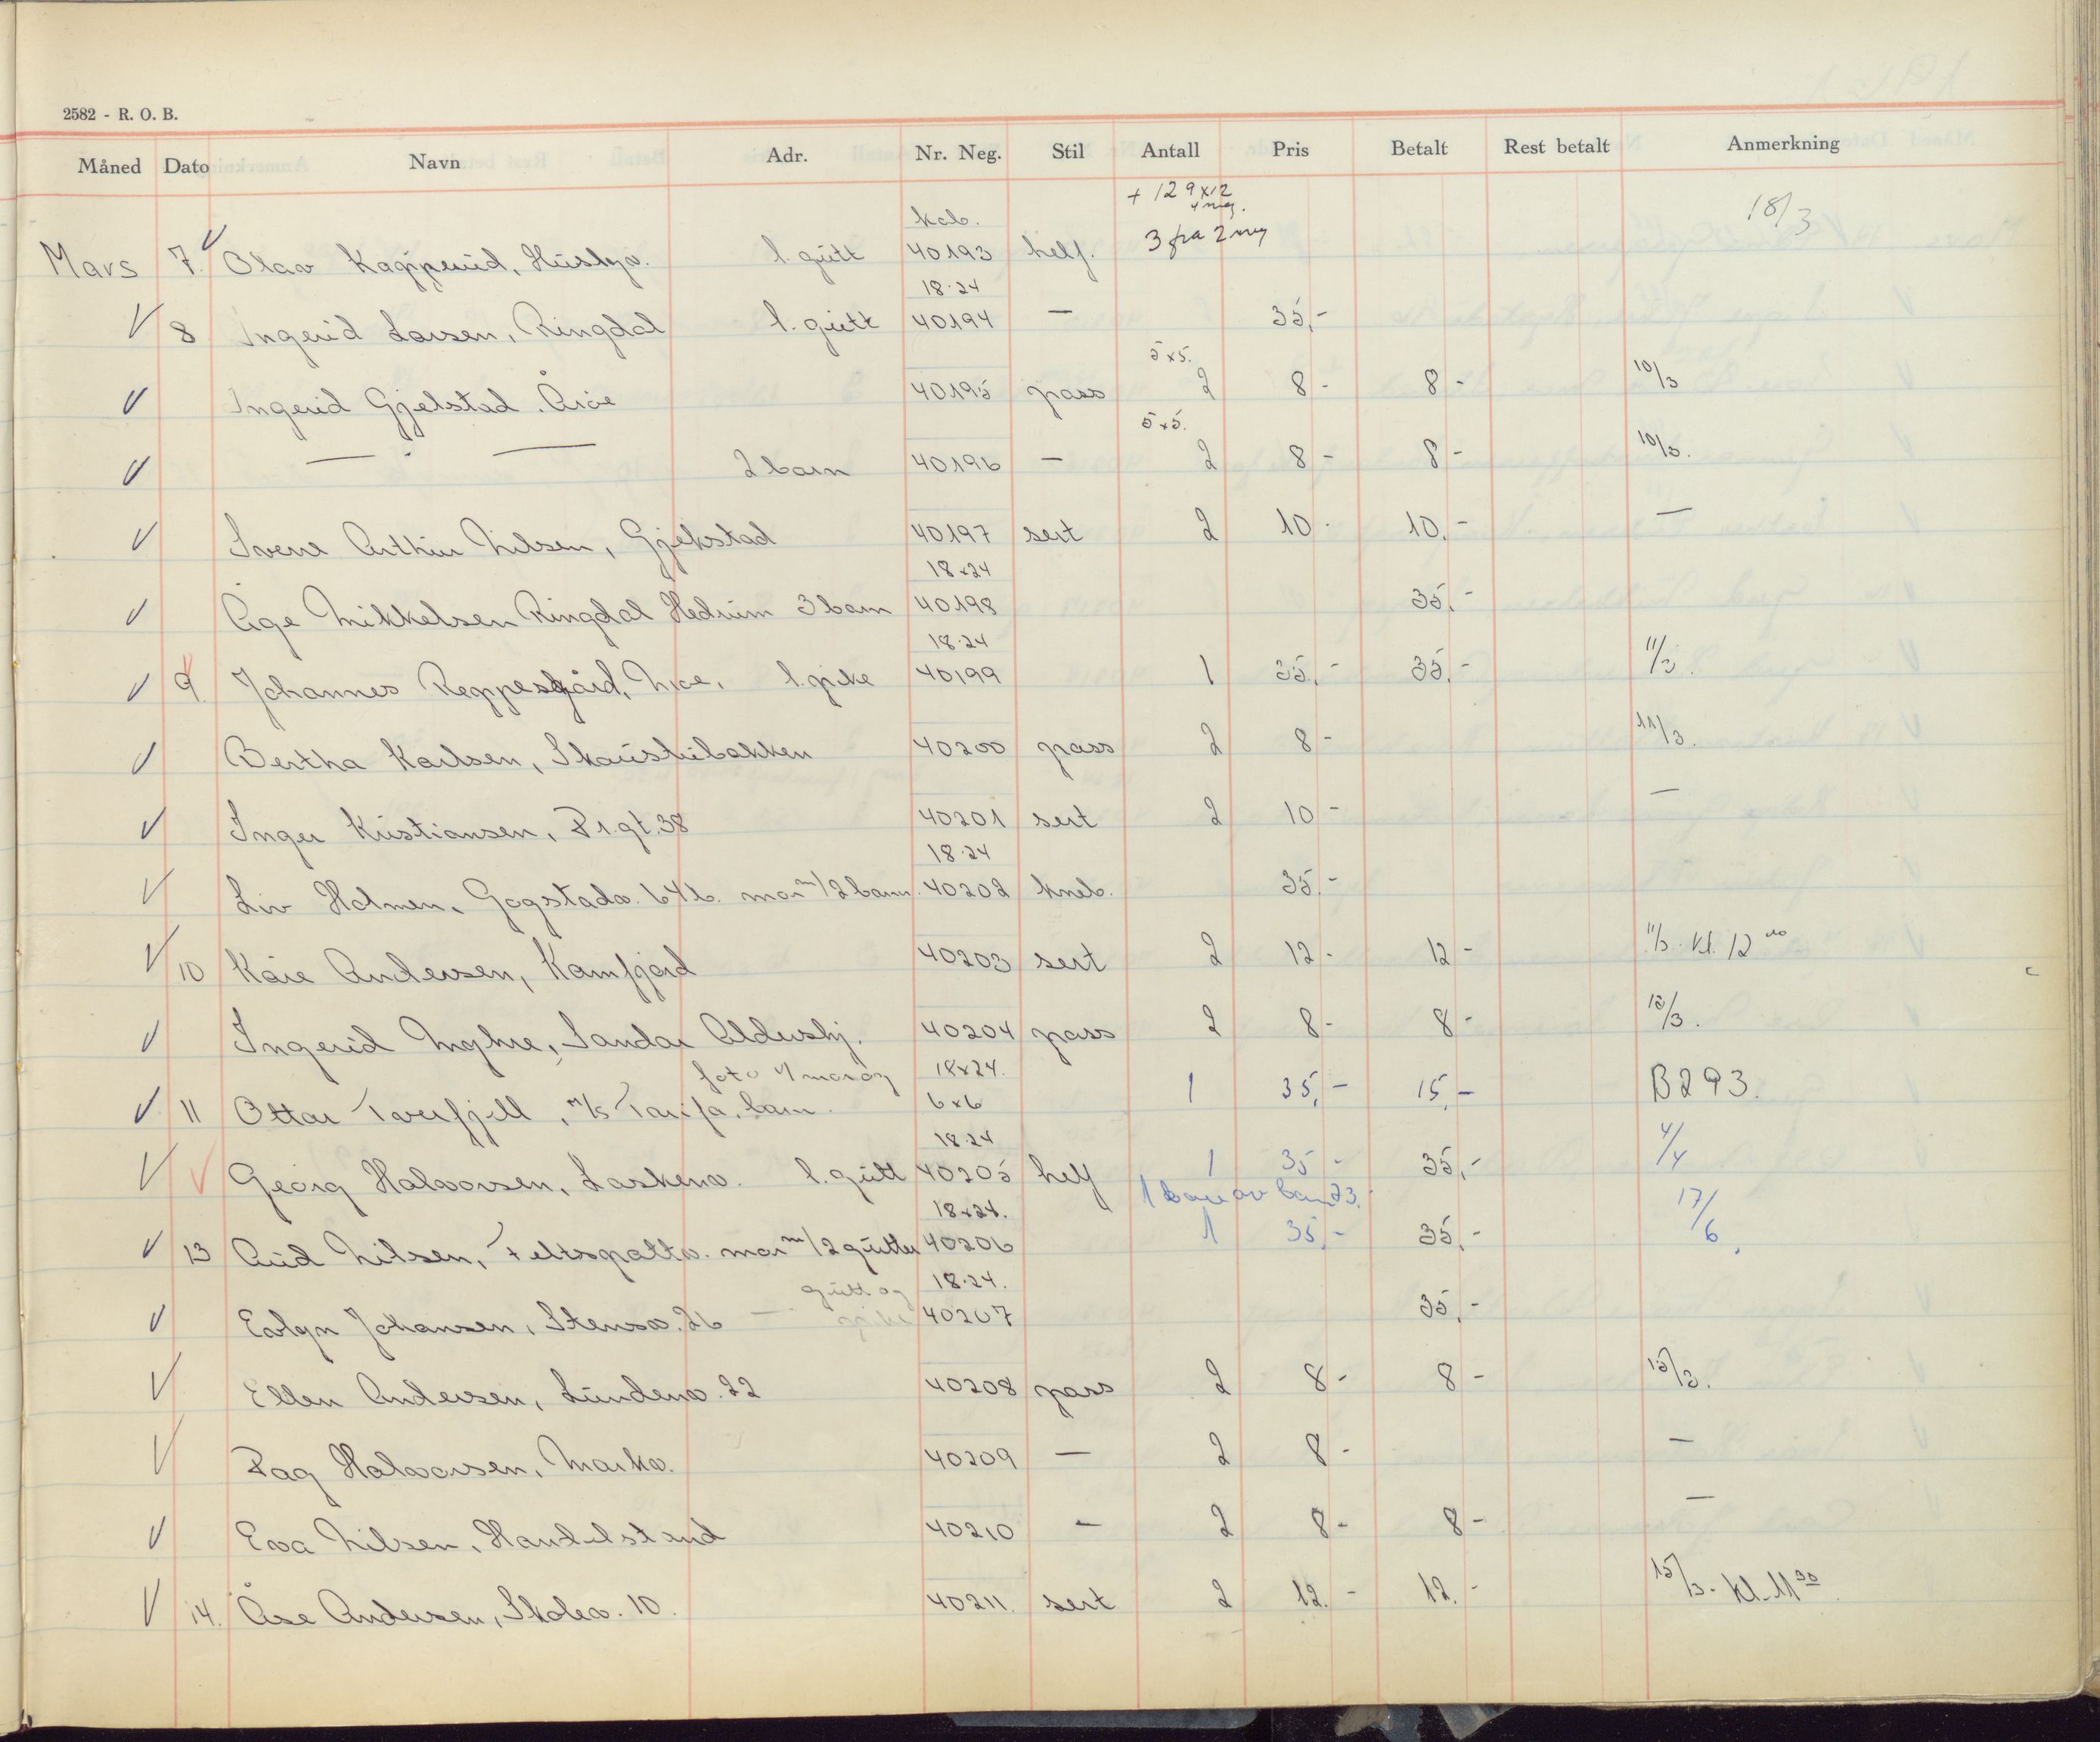 2582 - R. O. B.
Måned Dato Navn Adr. Nr. Neg. Stil Antall Pris Betalt Rest betalt Anmerkning
+ 12 9x12
4 neg.
kab. 3 fra 2 neg 18/3
Mars 7. Olav Kapperud, Húsbyv. l. gútt 40193 helf.
18·24
8 Ingerid Larsen, Ringdal l. gútt 40194 — 35,-
5x5.
Ingerid Gjelstad. Åröe 40195 pass 2 8 - 8 - 10/3
5x5.
— · — 2 barn 40196 — 2 8 - 8 - 10/3.
Sverre Arthúr Nilsen, Gjekstad 40197 sert 2 10 - 10,- —
18x24
Åge Mikkelsen Ringdal Hedrúm 3 barn 40198 35,-
18·24
9. Johannes Reppesgård, l. pike 40199 1 35,- 35,- 11/3.
Bertha Karlsen, 40200 pass 2 8 - 11/3.
Inger Kristiansen, Pr.gt. 38 40201 sert 2 10 - —
18·24
Liv Holmen, Gogstadv. 64b. mor m/2 barn. 40202 kneb. 35,-
10 Kåre Andersen, Kamfjord 40203 sert 2 12 - 12 - 11/3. kl. 12 00
Ingerid Myhre, Sandar Aldershj. 40204 pass 2 8 - 8 - 13/3.
foto 4 mor og 18x24.
11 Ottar Tverfjell, m/s Tarifa, barn. 6x6 1 35,- 15,- B293.
18·24
Georg Halvorsen, Laskenv. l. gútt 40205 helf 1 35 - 35,- 4/4
1 bare av barn 23.
18x24.
13 Aúd Nilsen, Feltspattv. mor m/2 gútter 40206 1 35,- 35,- 17/6.
gútt og 18·24.
Evlyn Johansen, Stensv. 26 — pike 40207 35,-
Ellen Andersen, Lúndenv. 22 40208 pass 2 8 - 8 - 15/3.
Dag Halvorsen, Markv. 40209 — 2 8 - —
Eva Nilsen, Handelstand 40210 — 2 8 - 8 - —
14. Åse Andersen, Skolev. 10. 40211. sert 2 12. - 12. - 15/3. kl. 11 30